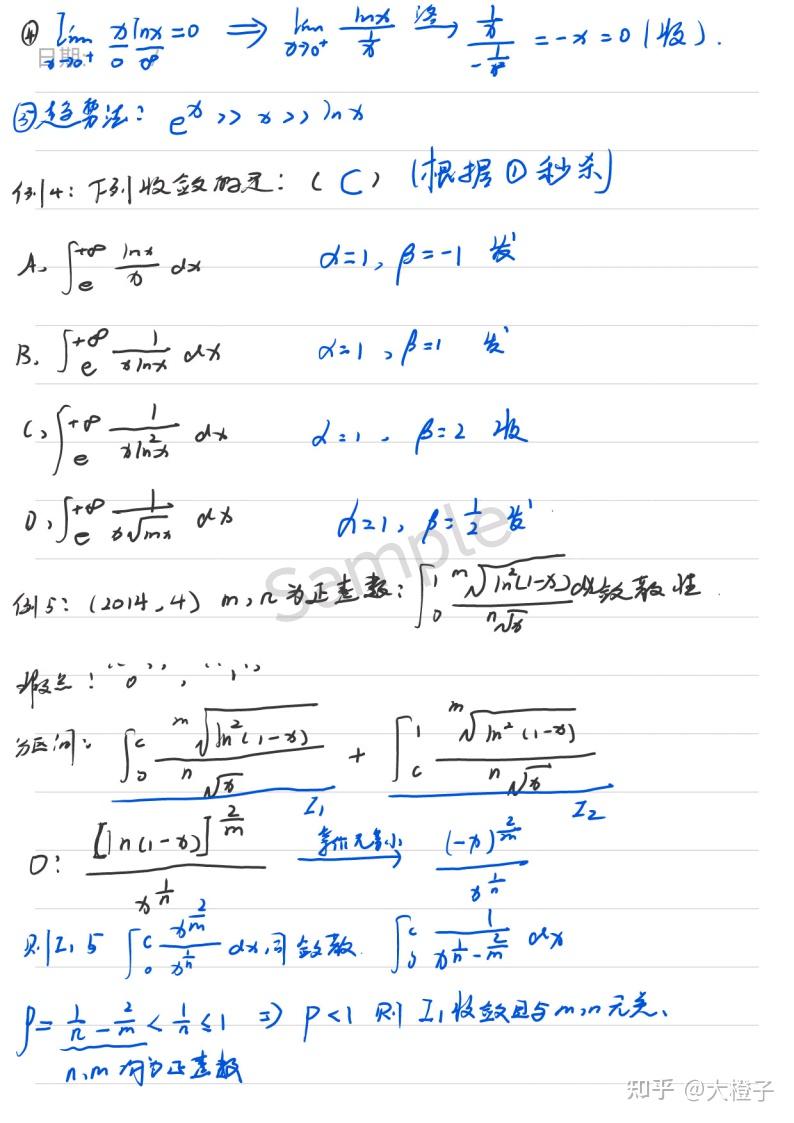 ④ lim_{x→0⁺} x lnx = 0 ⟹ lim_{x→0⁺} lnx / (1/x) 洛→ (1/x) / (-1/x²) = -x = 0 (收).
日期:
0 ∞
⑤趋势法: eˣ >> x >> lnx
例4: 下列收敛的是: ( C ) (根据①秒杀)
A、∫_e^{+∞} lnx/x dx α=1, β=-1 发
B、∫_e^{+∞} 1/(x lnx) dx α=1, β=1 发
C、∫_e^{+∞} 1/(x ln²x) dx α=1, β=2 收
D、∫_e^{+∞} 1/(x√lnx) dx α=1, β=1/2 发
Sample
例5: (2014,4) m,n为正整数: ∫_0^1 ᵐ√(ln²(1-x)) / ⁿ√x dx敛散性.
瑕点: "0", "1",
分区间: ∫_0^c ᵐ√(ln²(1-x)) / ⁿ√x + ∫_c^1 ᵐ√(ln²(1-x)) / ⁿ√x
I₁ I₂
0: [ln(1-x)]^{2/m} / x^{1/n} 等价无穷小→ (-x)^{2/m} / x^{1/n}
则I₁与 ∫_0^c x^{2/m} / x^{1/n} dx,同敛散. ∫_0^c 1 / x^{1/n - 2/m} dx
P = 1/n - 2/m < 1/n ≤ 1 ⟹ P<1 则 I₁收敛且与m,n无关、
n,m 均为正整数
知乎 @大橙子